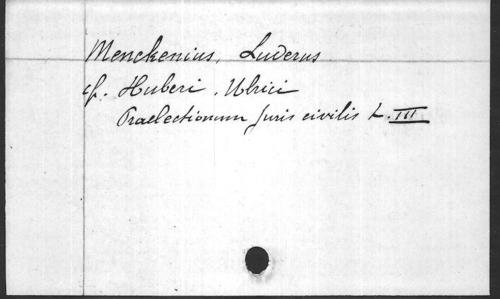 Menckenius, Luderus
cf. Huberi, Ulrici
Praelectionum Juris civilis L. III